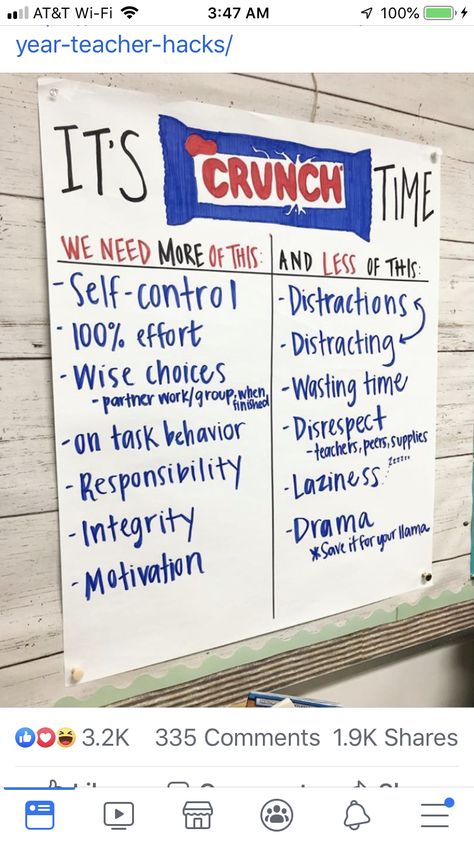 AT&T Wi-Fi 3:47 AM 100%
year-teacher-hacks/
IT'S CRUNCH TIME
WE NEED MORE OF THIS:
- Self-control
- 100% effort
- Wise choices
- partner work/group, when finished
- on task behavior
- Responsibility
- Integrity
- Motivation
AND LESS OF THIS:
- Distractions
- Distracting
- Wasting time
- Disrespect
- teachers, peers, supplies
- Laziness zzzzz...
- Drama
*Save it for your llama
3.2K 335 Comments 1.9K Shares